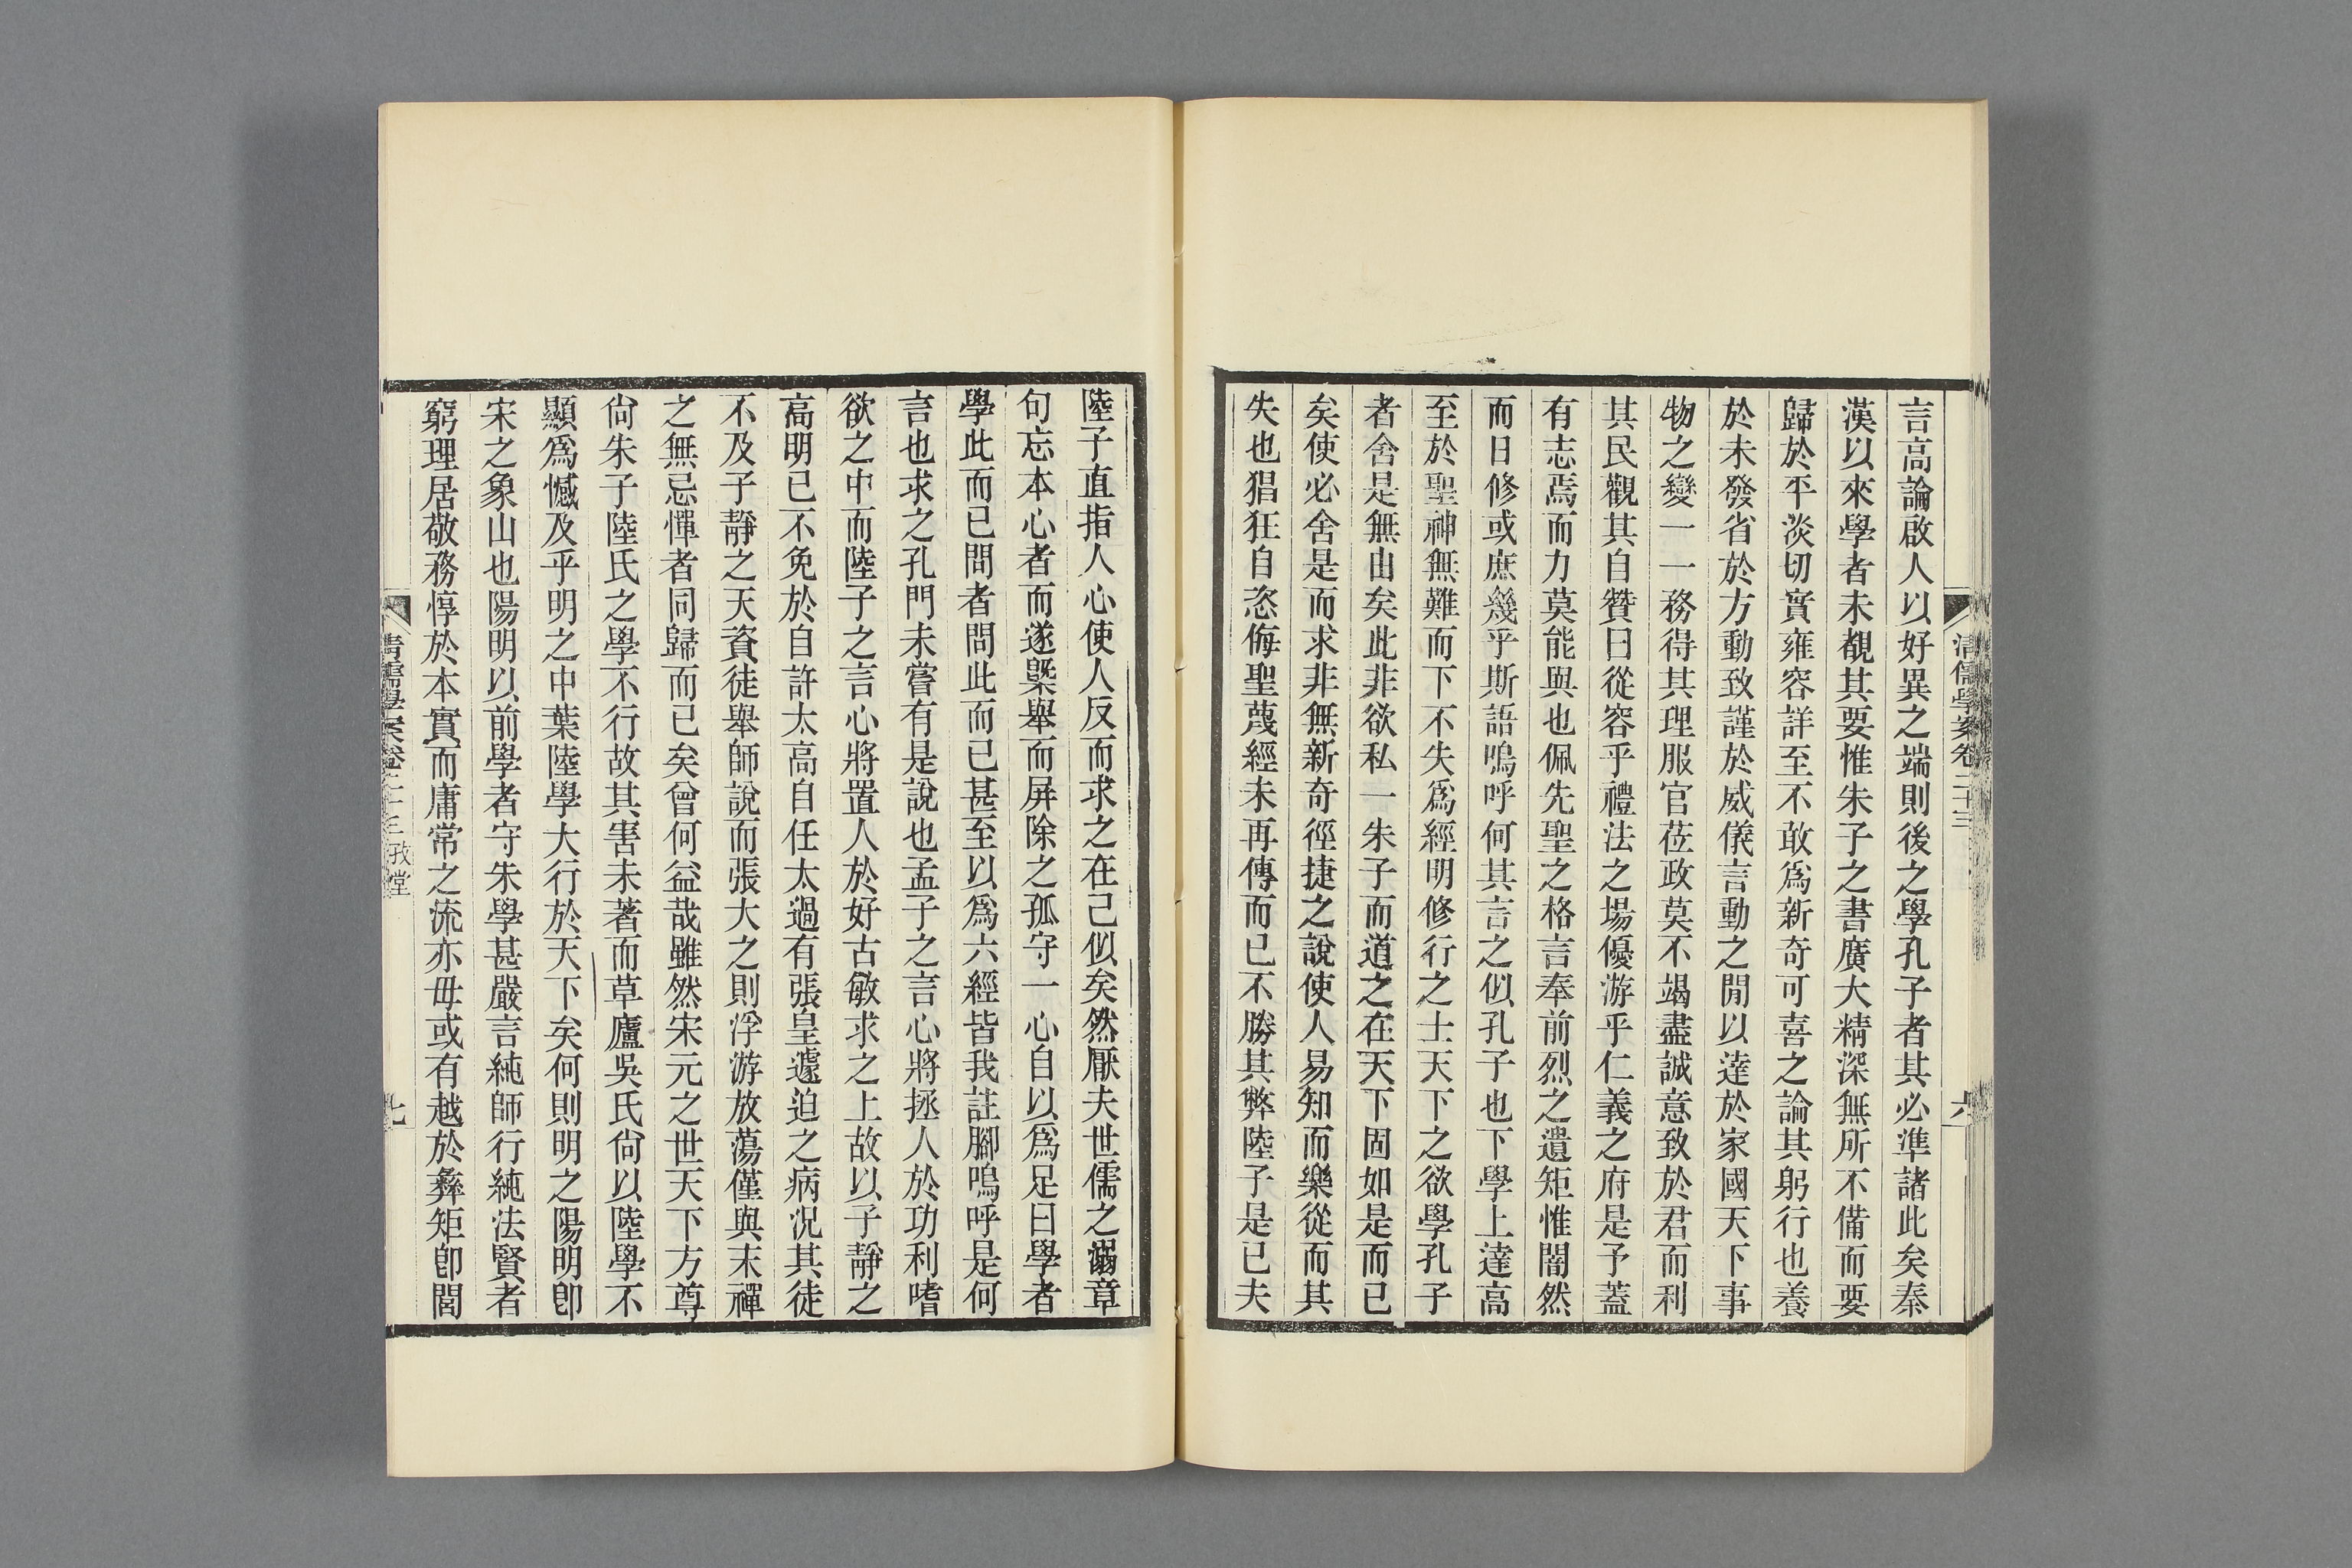 清儒學案卷二十三
六
言高論啟人以好異之端則後之學孔子者其必準諸此矣秦
漢以來學者未覩其要惟朱子之書廣大精深無所不備而要
歸於平淡切實雍容詳至不敢爲新奇可喜之論其躬行也養
於未發省於方動致謹於威儀言動之閒以達於家國天下事
物之變一一務得其理服官莅政莫不竭盡誠意致於君而利
其民觀其自贊曰從容乎禮法之場優游乎仁義之府是予蓋
有志焉而力莫能與也佩先聖之格言奉前烈之遺矩惟闇然
而日修或庶幾乎斯語嗚呼何其言之似孔子也下學上達高
至於聖神無難而下不失爲經明修行之士天下之欲學孔子
者舍是無由矣此非欲私一朱子而道之在天下固如是而已
矣使必舍是而求非無新奇徑捷之說使人易知而樂從而其
失也猖狂自恣侮聖蔑經未再傳而已不勝其弊陸子是已夫
陸子直指人心使人反而求之在己似矣然厭夫世儒之溺章
句忘本心者而遂槩舉而屏除之孤守一心自以爲足曰學者
學此而已問者問此而已甚至以爲六經皆我註腳嗚呼是何
言也求之孔門未嘗有是說也孟子之言心將拯人於功利嗜
欲之中而陸子之言心將置人於好古敏求之上故以子靜之
高明已不免於自許太高自任太過有張皇遽迫之病況其徒
不及子靜之天資徒舉師說而張大之則浮游放蕩僅與末禪
之無忌憚者同歸而已矣曾何益哉雖然宋元之世天下方尊
尙朱子陸氏之學不行故其害未著而草廬吳氏尙以陸學不
顯爲憾及乎明之中葉陸學大行於天下矣何則明之陽明卽
宋之象山也陽明以前學者守朱學甚嚴言純師行純法賢者
窮理居敬務惇於本實而庸常之流亦毋或有越於彝矩卽閭
清儒學案卷二十三
七